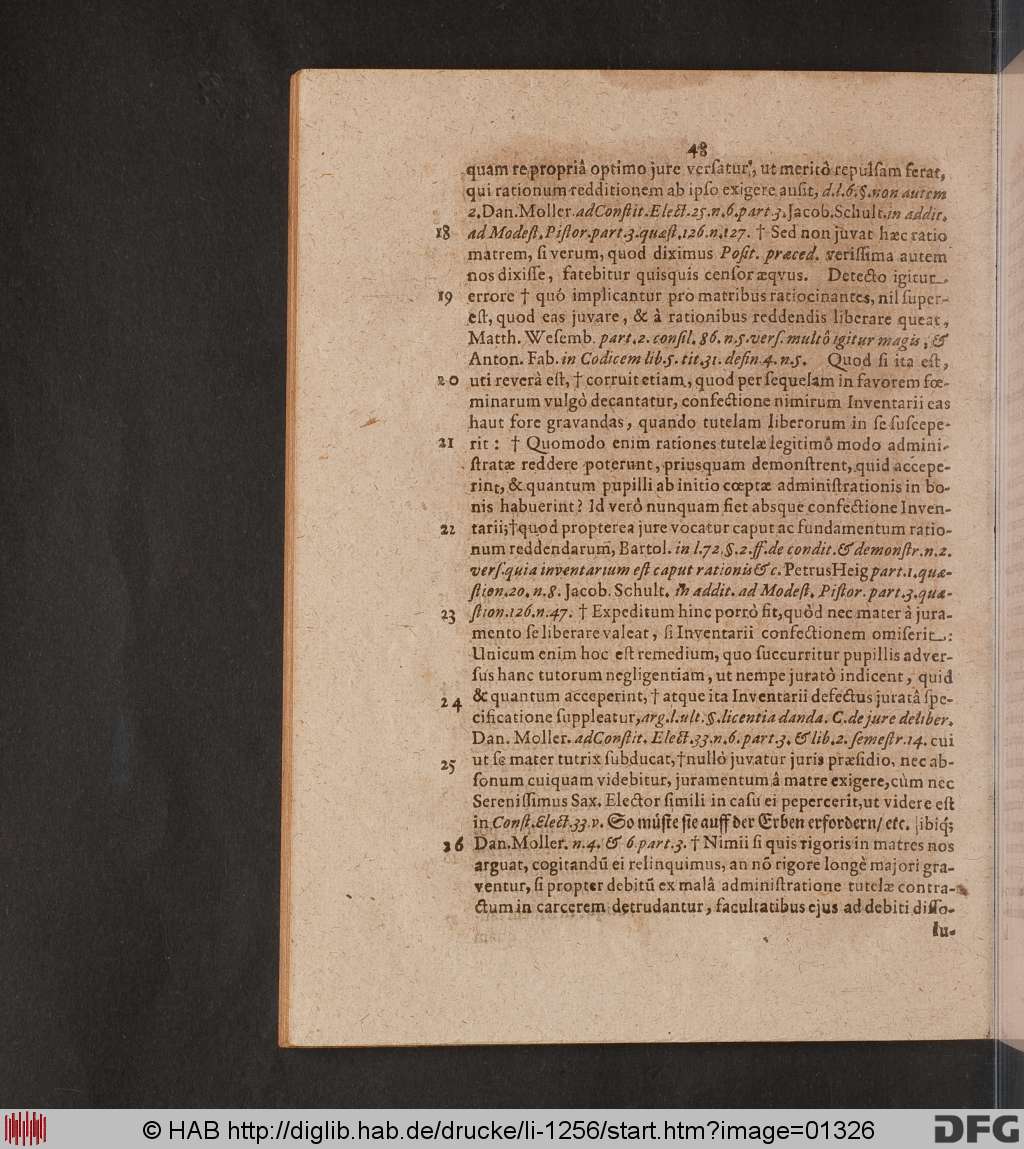 48
quam re propriâ optimo jure versatur, ut meritò repulsam ferat,
qui rationum redditionem ab ipso exigere ausit, d.l.6.§.non autem
2. Dan. Moller. ad Constit. Elect. 25. n. 6. part. 3. Jacob. Schult. in addit.
18 ad Modest. Pistor. part. 3. quæst. 126. n. 127. † Sed non juvat hæc ratio
matrem, si verum, quod diximus Posit. præced. verissima autem
nos dixisse, fatebitur quisquis censor æqvus. Detecto igitur
19 errore † quó implicantur pro matribus ratiocinantes, nil super-
est, quod eas juvare, & à rationibus reddendis liberare queat,
Matth. Wesemb. part. 2. consil. 86. n. 5. vers. multô igitur magis, &
Anton. Fab. in Codicem lib. 5. tit. 31. defin. 4. n. 5. Quod si ita est,
20 uti reverà est, † corruit etiam, quod per sequelam in favorem fœ-
minarum vulgò decantatur, confectione nimirum Inventarii eas
haut fore gravandas, quando tutelam liberorum in se suscepe-
21 rit: † Quomodo enim rationes tutelæ legitimô modo admini-
stratæ reddere poterunt, priusquam demonstrent, quid accepe-
rint, & quantum pupilli ab initio cœptæ administrationis in bo-
nis habuerint? Id verò nunquam fiet absque confectione Inven-
22 tarii; † quod propterea jure vocatur caput ac fundamentum ratio-
num reddendarum, Bartol. in l. 72. §. 2. ff. de condit. & demonstr. n. 2.
vers. quia inventarium est caput rationis &c. Petrus Heig part. 1. quæ-
stion. 20. n. 8. Jacob. Schult. in addit. ad Modest. Pistor. part. 3. quæ-
23 stion. 126. n. 47. † Expeditum hinc porrò fit, quòd nec mater à jura-
mento se liberare valeat, si Inventarii confectionem omiserit:
Unicum enim hoc est remedium, quo succurritur pupillis adver-
sus hanc tutorum negligentiam, ut nempe juratò indicent, quid
24 & quantum acceperint, † atque ita Inventarii defectus juratâ spe-
cificatione suppleatur, arg. l. ult. §. licentia danda. C. de jure deliber.
Dan. Moller. ad Constit. Elect. 33. n. 6. part. 3. & lib. 2. semestr. 14. cui
25 ut se mater tutrix subducat, † nullò juvatur juris præsidio, nec ab-
sonum cuiquam videbitur, juramentum â matre exigere, cùm nec
Serenissimus Sax. Elector simili in casu ei pepercerit, ut videre est
in Const. Elect. 33. v. So müste sie auff der Erben erfordern/ etc. ibiq;
26 Dan. Moller. n. 4. & 6. part. 3. † Nimii si quis rigoris in matres nos
arguat, cogitandū ei relinquimus, an nō rigore longè majori gra-
ventur, si propter debitū ex malâ administratione tutelæ contra-
ctum in carcerem detrudantur, facultatibus ejus ad debiti disso-
lu-
© HAB http://diglib.hab.de/drucke/li-1256/start.htm?image=01326
DFG